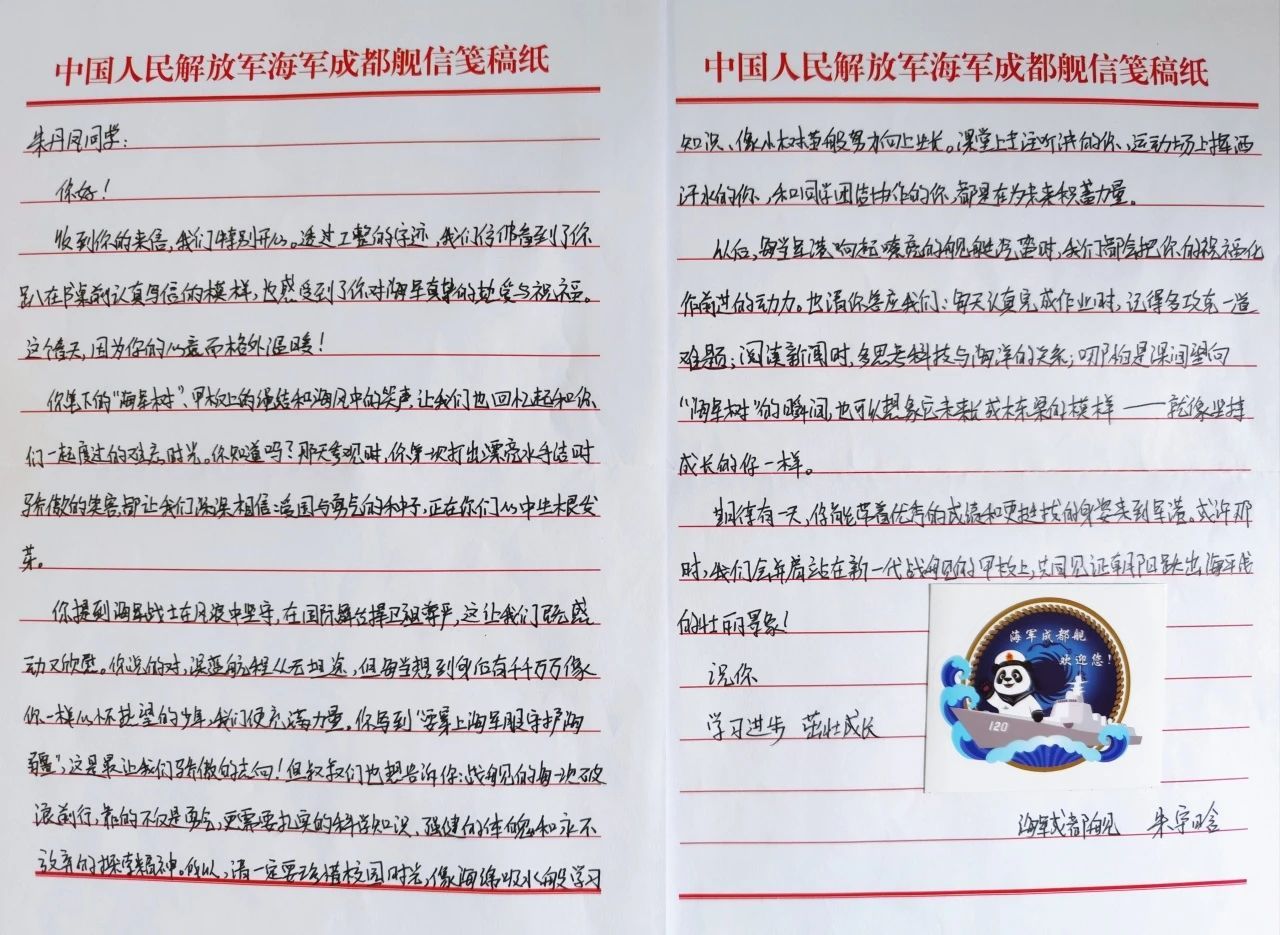 中国人民解放军海军成都舰信笺稿纸
朱丹凤同学：
你好！
收到你的来信，我们特别开心。透过工整的字迹，我们仿佛看到了你
趴在书桌前认真写信的模样，也感受到了你对海军真挚的热爱与祝福。
这个春天，因为你的心意而格外温暖！
你笔下的“海军树”、甲板上的绳结和海风中的笑声，让我们也回忆起和你
们一起度过的难忘时光。你知道吗？那天参观时，你第一次打出漂亮水手结时
骄傲的笑容都让我们深深相信：爱国与勇气的种子，正在你们心中生根发
芽。
你提到海军战士在风浪中坚守，在国际舞台捍卫祖国尊严，这让我们既感
动又欣慰。你说的对，深蓝航程从无坦途，但每当想到身后有千千万万像
你一样心怀热望的少年，我们便充满力量。你写到“要穿上海军服守护海
疆”，这是最让我们骄傲的志向！但叔叔们也想告诉你：战舰的每一次破
浪前行，靠的不仅是勇气，更需要扎实的科学知识、强健的体魄和永不
放弃的探索精神。所以，请一定要珍惜校园时光，像海绵吸水般学习
中国人民解放军海军成都舰信笺稿纸
知识、像小树苗般努力向上生长。课堂上专注听讲的你、运动场上挥洒
汗水的你、和同学团结协作的你，都是在为未来积蓄力量。
以后，每当军港响起嘹亮的舰艇汽笛时，我们都会把你的祝福化
作前进的动力。也请你答应我们：每天认真完成作业时，记得多攻克一道
难题；阅读新闻时，多思考科技与海洋的关系；哪怕是课间望向
“海军树”的瞬间，也可以想象它未来长成栋梁的模样——就像坚持
成长的你一样。
期待有一天，你能带着优秀的成绩和更挺拔的身姿来到军港。或许那
时，我们会并肩站在新一代战舰的甲板上，共同见证朝阳跃出海平线
的壮丽景象！
祝你
学习进步 茁壮成长
海军成都舰
欢迎您！
120
海军成都舰 朱宇晗